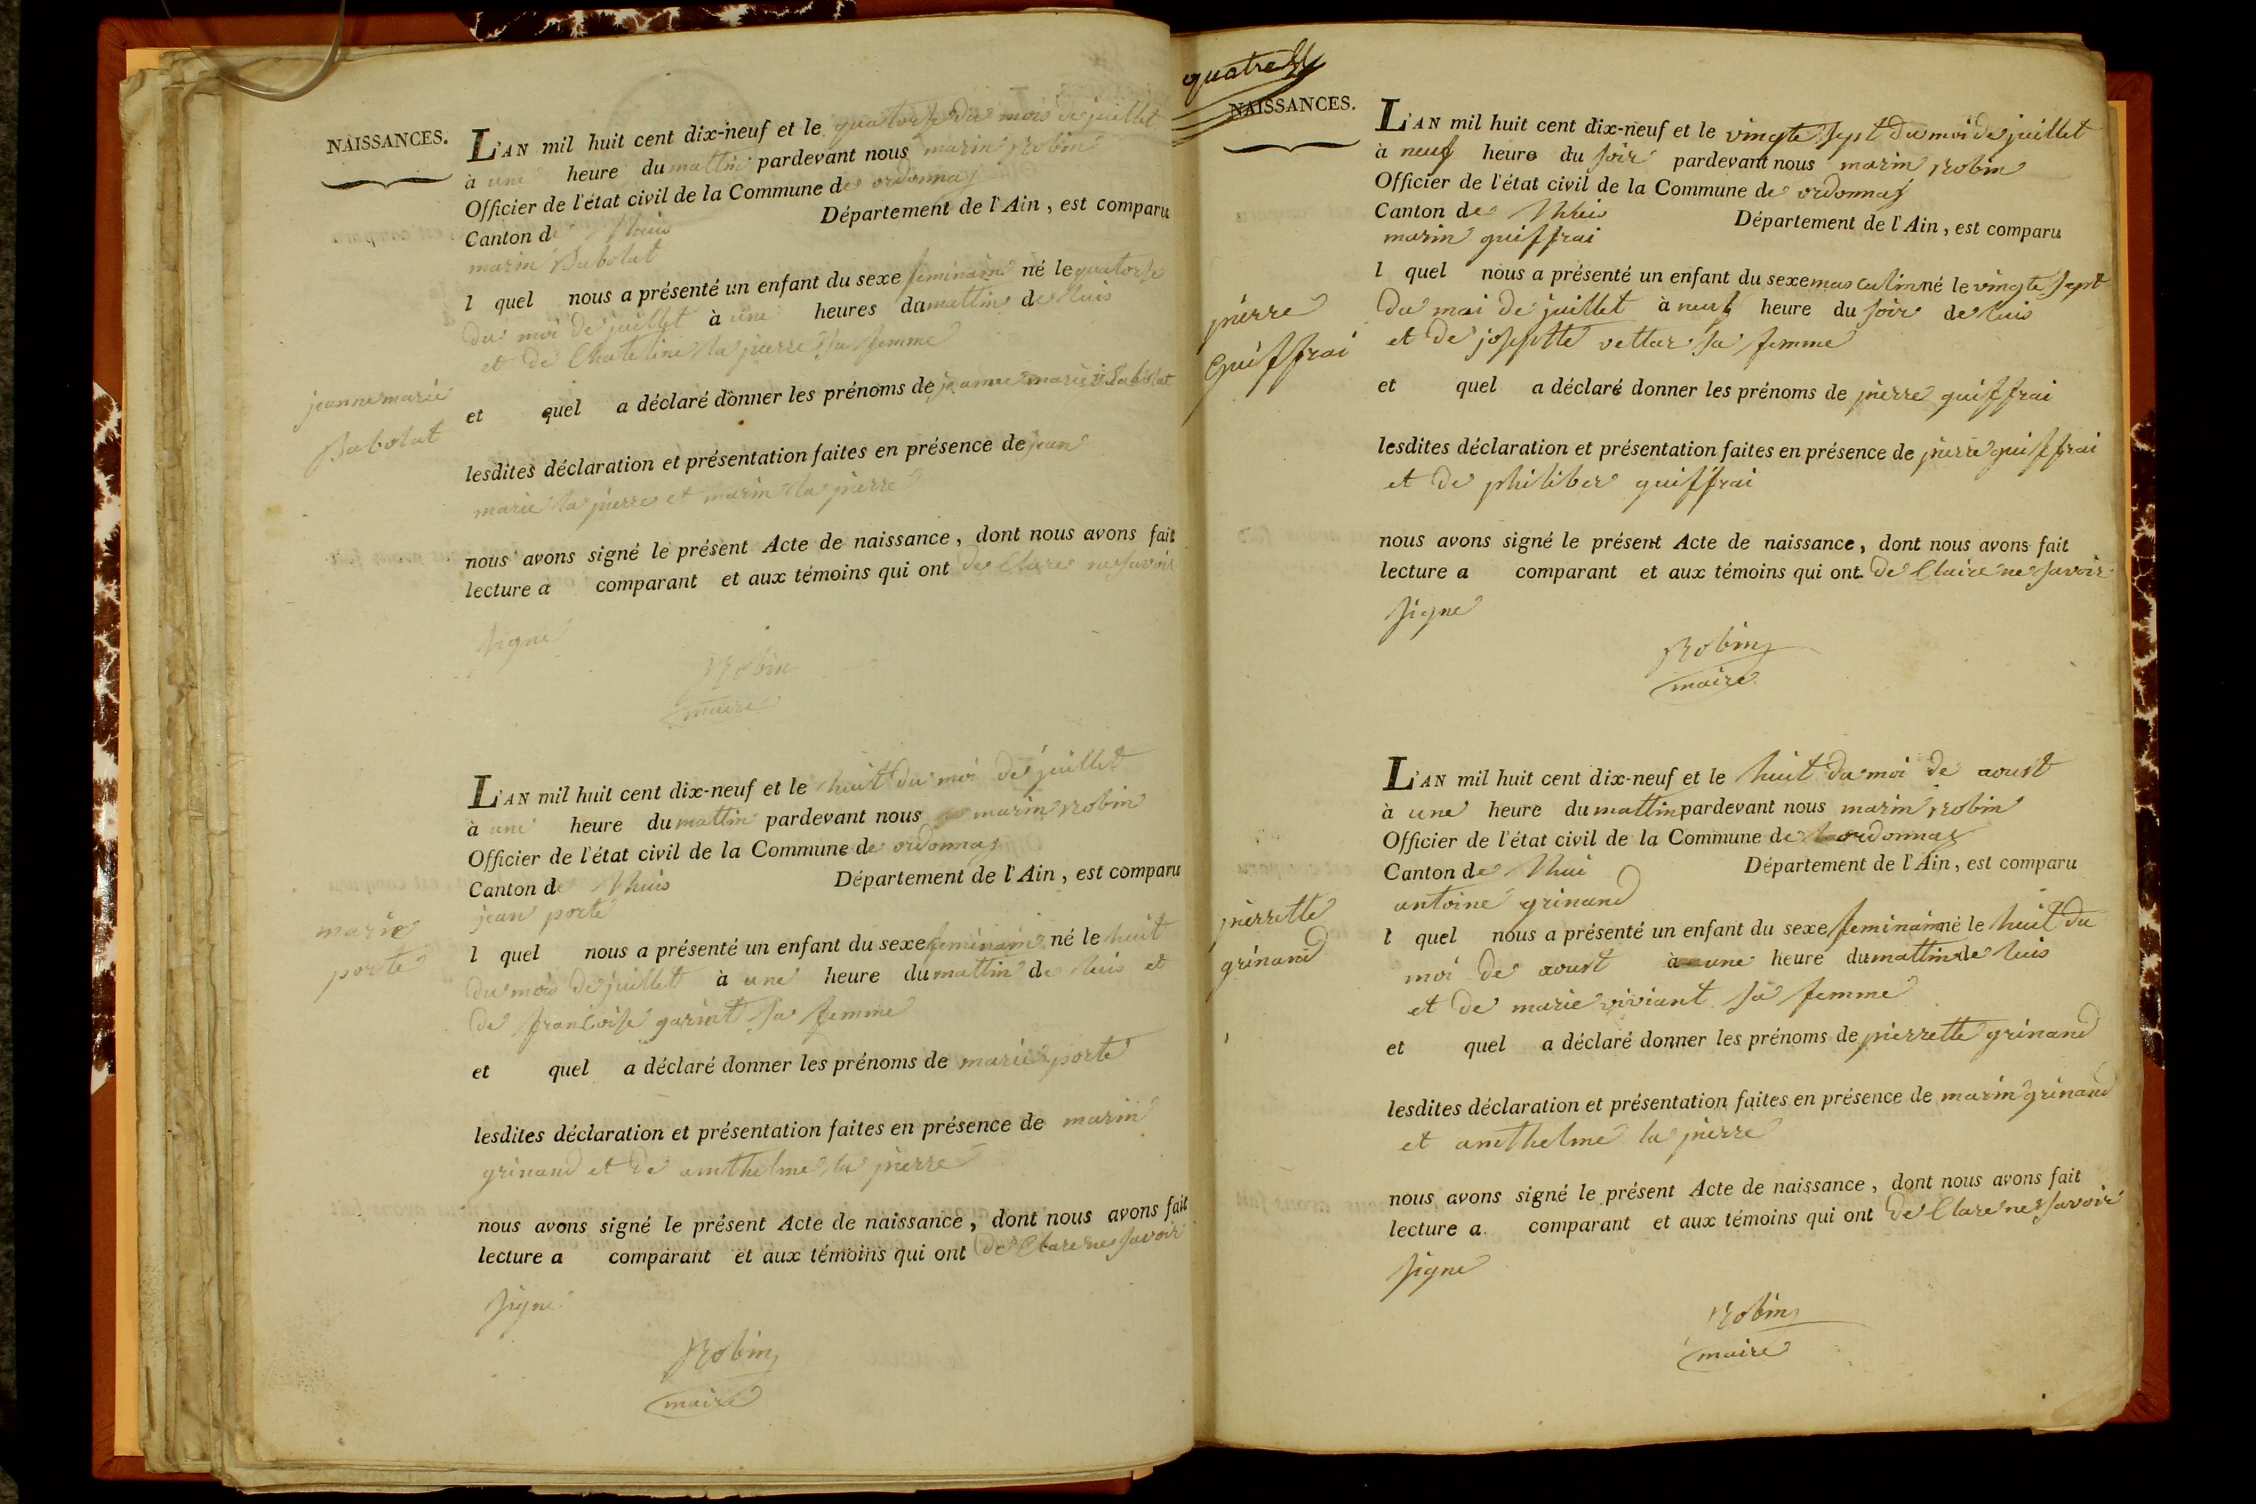 NAISSANCES.
L'AN mil huit cent dix-neuf et le quatorse du mois de juillet
à une heure du mattin pardevant nous marin Robin
Officier de l'état civil de la Commune de ordonnas
Canton de lhuis Département de l'Ain, est comparu
marin Babolat
l quel nous a présenté un enfant du sexe feminain né le quatorse
du moi de juillet à une heures du mattin de luis
et de Chateline la pierre sa femme
jeanne marie
Babolat
et quel a déclaré donner les prénoms de jeanne marie Babolat
lesdites déclaration et présentation faites en présence de jean
marie la pierre et marin la pierre
nous avons signé le présent Acte de naissance, dont nous avons fait
lecture a comparant et aux témoins qui ont de Clare ne savoir
signe
Robin
maire
L'AN mil huit cent dix-neuf et le huit du moi de juillet
à une heure du mattin pardevant nous marin Robin
Officier de l'état civil de la Commune de ordonnas
Canton de lhuis Département de l'Ain, est comparu
jean porte
marie
porte
l quel nous a présenté un enfant du sexe feminain né le huit
du mois de juillet à une heure du mattin de luis et
de francoise garint sa femme
et quel a déclaré donner les prénoms de marie porte
lesdites déclaration et présentation faites en présence de marin
grinand et de amthelme la pierre
nous avons signé le présent Acte de naissance, dont nous avons fait
lecture a comparant et aux témoins qui ont de Clare ne savoir
signe
Robin
maire
quatre
NAISSANCES.
L'AN mil huit cent dix-neuf et le vingte sept du moi de juillet
à neuf heure du soir pardevant nous marin Robin
Officier de l'état civil de la Commune de ordonnas
Canton de lhuis Département de l'Ain, est comparu
marin guiffrai
l quel nous a présenté un enfant du sexe masculin né le vingte sept
du moi de juillet à neuf heure du soir de luis
et de josephtte vettar sa femme
pierre
guiffrai
et quel a déclaré donner les prénoms de pierre guiffrai
lesdites déclaration et présentation faites en présence de pierre guiffrai
et de philiber guiffrai
nous avons signé le présent Acte de naissance, dont nous avons fait
lecture a comparant et aux témoins qui ont de Claire ne savoir
signe
Robin
maire
L'AN mil huit cent dix-neuf et le huit du moi de aoust
à une heure du mattin pardevant nous marin Robin
Officier de l'état civil de la Commune de ordonnas
Canton de lhui Département de l'Ain, est comparu
antoine grinand
pierrette
grinand
l quel nous a présenté un enfant du sexe feminain né le huit du
moi de aoust à une heure du mattin de luis
et de marie viviant sa femme
et quel a déclaré donner les prénoms de pierrette grinand
lesdites déclaration et présentation faites en présence de marin grinand
et amthelme la pierre
nous avons signé le présent Acte de naissance, dont nous avons fait
lecture a comparant et aux témoins qui ont de Clare ne savoir
signe
Robin
maire